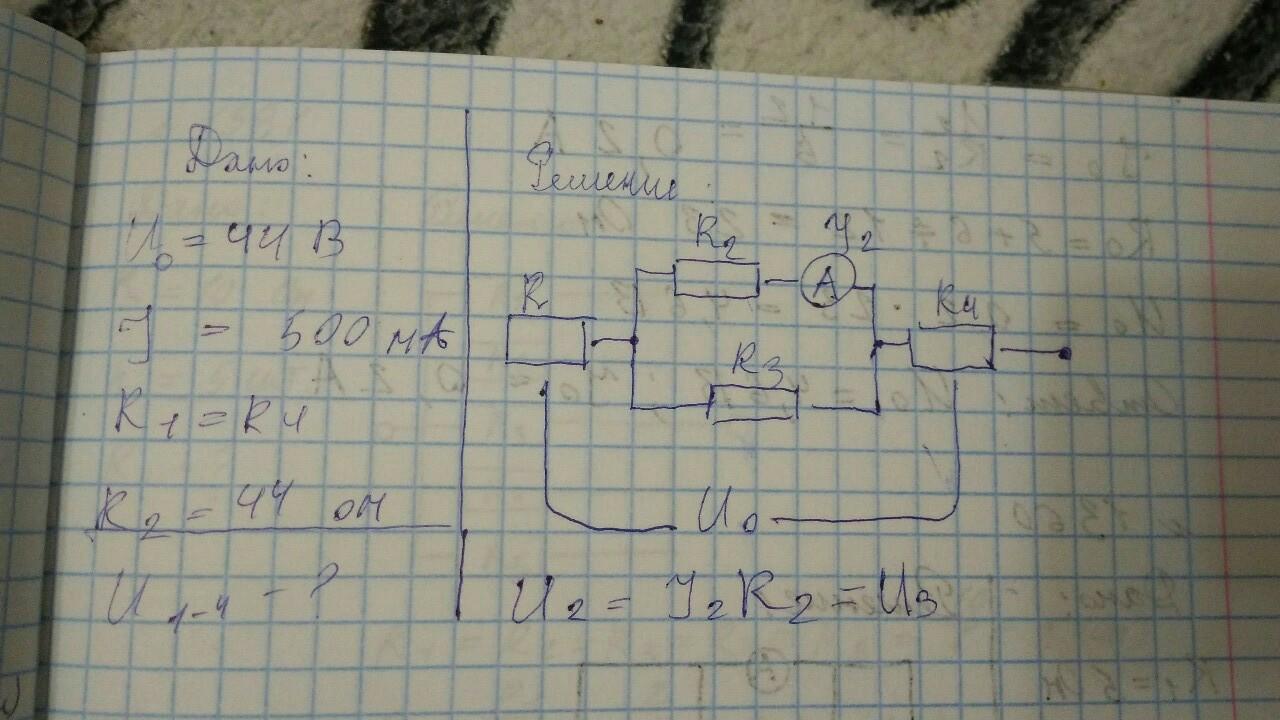 Дано:
U₀ = 44 В
J = 500 мА
R₁ = R4
R₂ = 44 ом
U₁₋₄ - ?
Решение:
R₂
J₂
A
R
R4
R3
U₀
U₂ = J₂R₂ = U₃